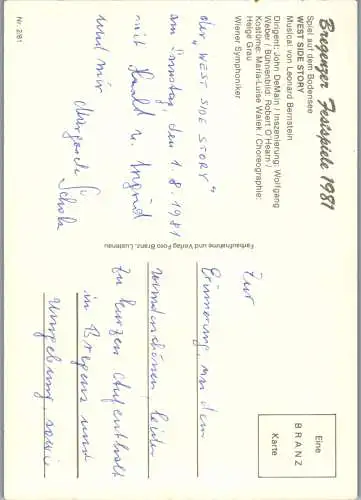 Bregenzer Festspiele 1981
Spiel auf dem Bodensee
WEST SIDE STORY
Musical von Leonard Bernstein
Dirigent: John DeMain / Inszenierung: Wolfgang
Weber / Bühnenbild: Robert O'Hearn /
Kostüme: Maria-Luise Walek / Choreographie:
Helge Grau
Wiener Symphoniker
Eine
BRANZ
Karte
Zur
Erinnerung, an den
wunderschönen, leider
zu kurzen Aufenthalt
in Bregenz und
Umgebung, sowie
der „WEST SIDE STORY"
am Samstag, den 1.8.1981
mit Harald u. Ingrid
und mir
Margarete
Farbaufnahme und Verlag Foto Branz, Lustenau
Nr. 2/81